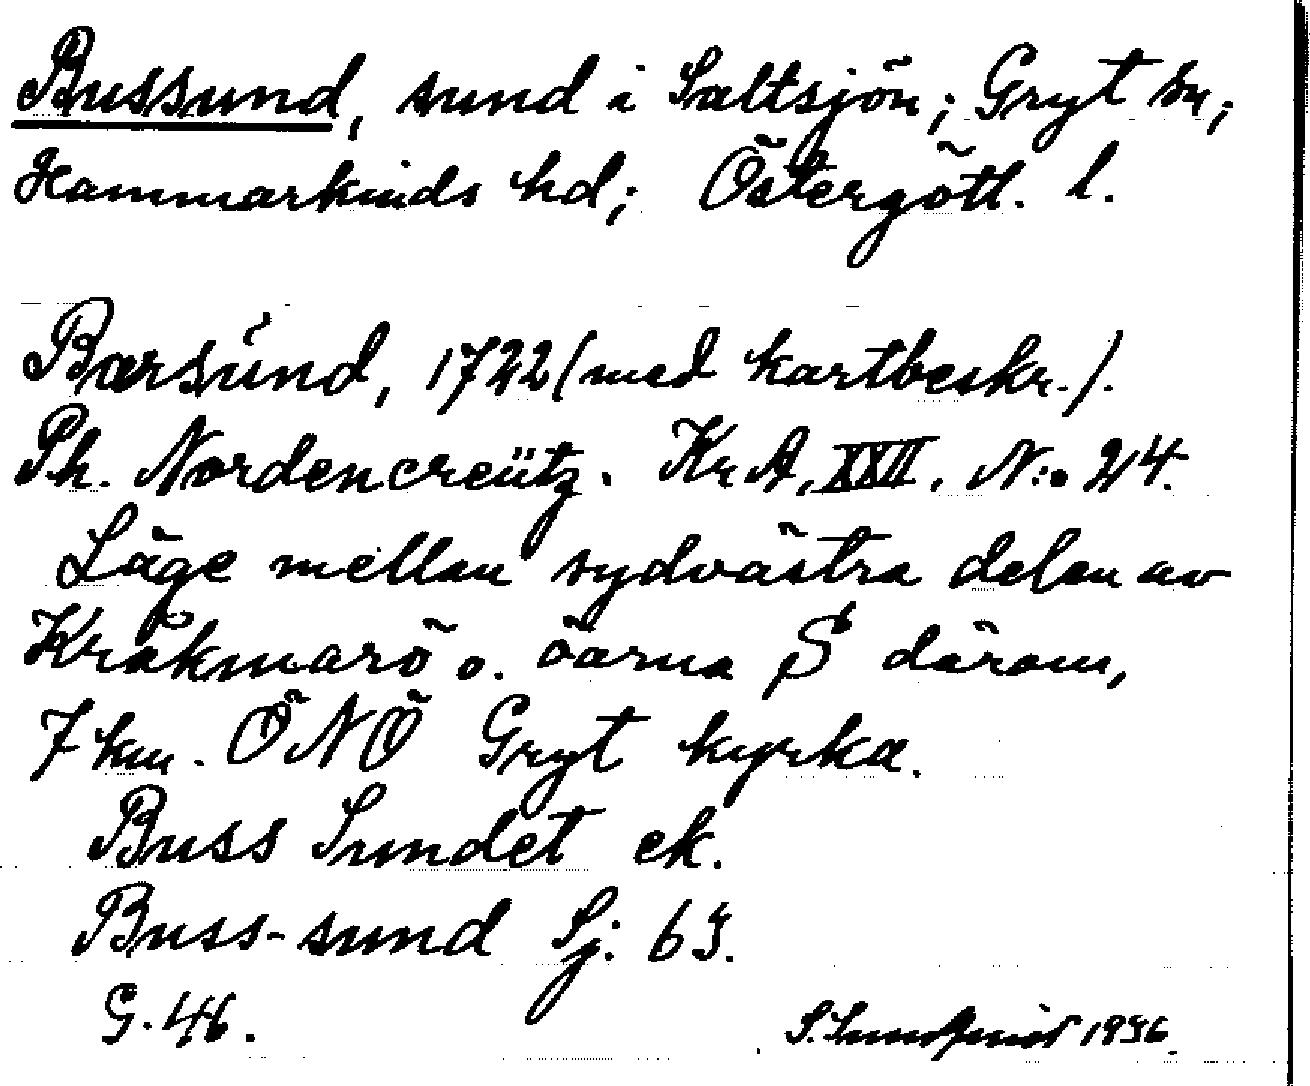 Bussund, sund i Saltsjön; Gryt sn;
Hammarkinds hd; Östergötl. l.
Barsúnd, 1722 (med kartbeskr.).
Ph. Nordencreütz. Kr A, XXII. N:o 24.
Läge mellan sydvästra delen av
Kråkmarö o. öarna S därom,
7 km. ÖNÖ Gryt kyrka.
Buss Sundet ek.
Buss-sund Sj: 63.
G. 46.
S. Lundqvist 1936